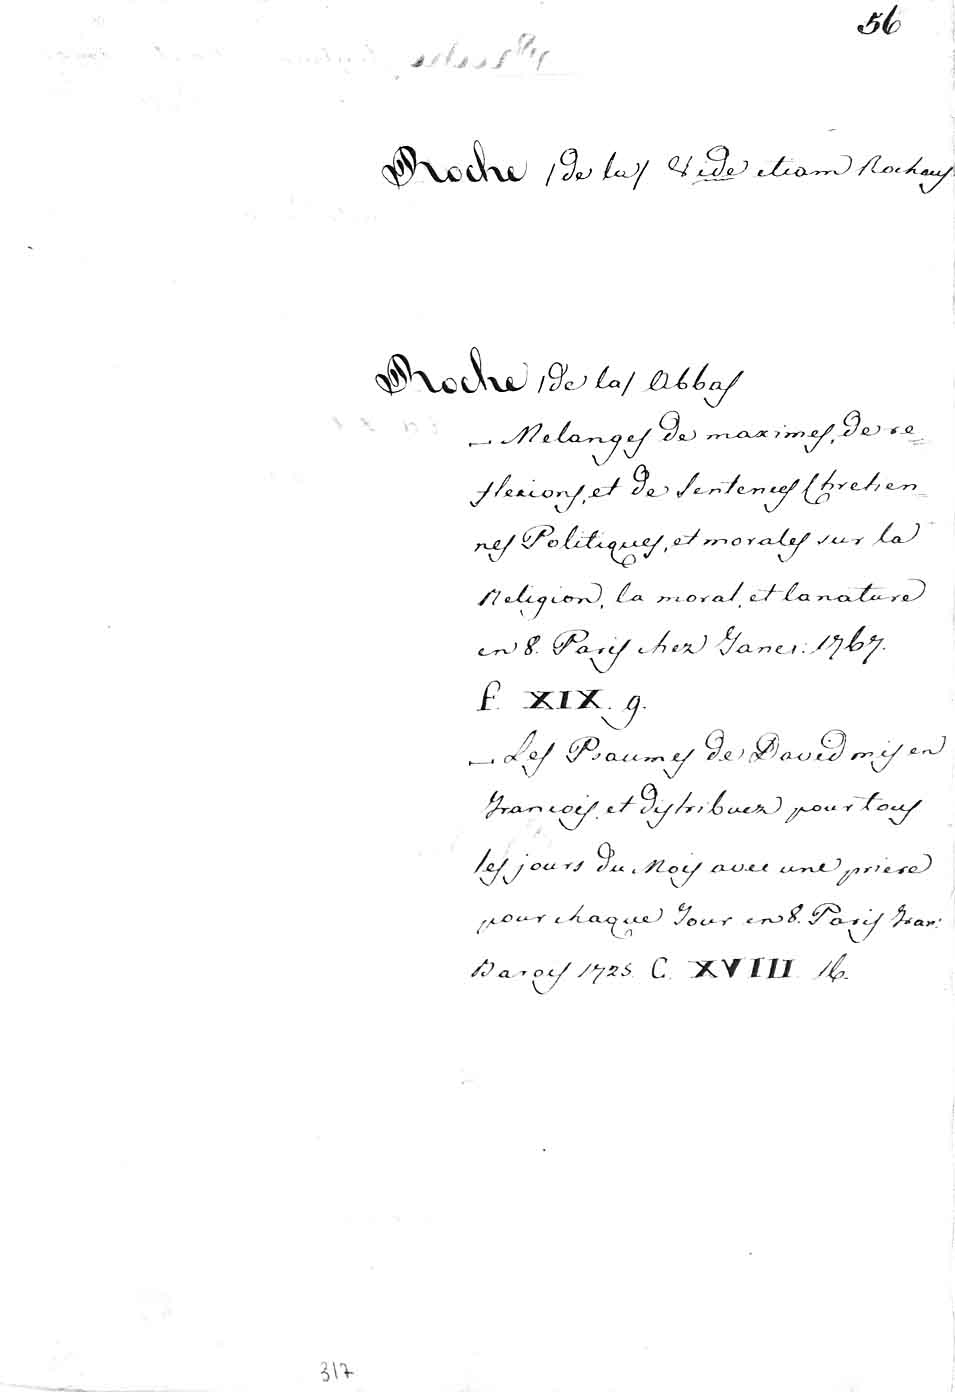 56
Roche (de la) Vide etiam Rochaus
Roche (de la) Abbas
— Melanges de maximes, de re=
flexions, et de Sentences Chretien=
nes Politiques, et morales sur la
Religion, la moral, et la nature
en 8. Paris chez Ganes: 1767.
f. XIX. 9.
— Les Psaumes de David mis en
Francois, et distribuez pour tous
les jours du Mois avec une priere
pour chaque Jour en 8. Paris Fran:
Barois 1725. C. XVIII 16.
317